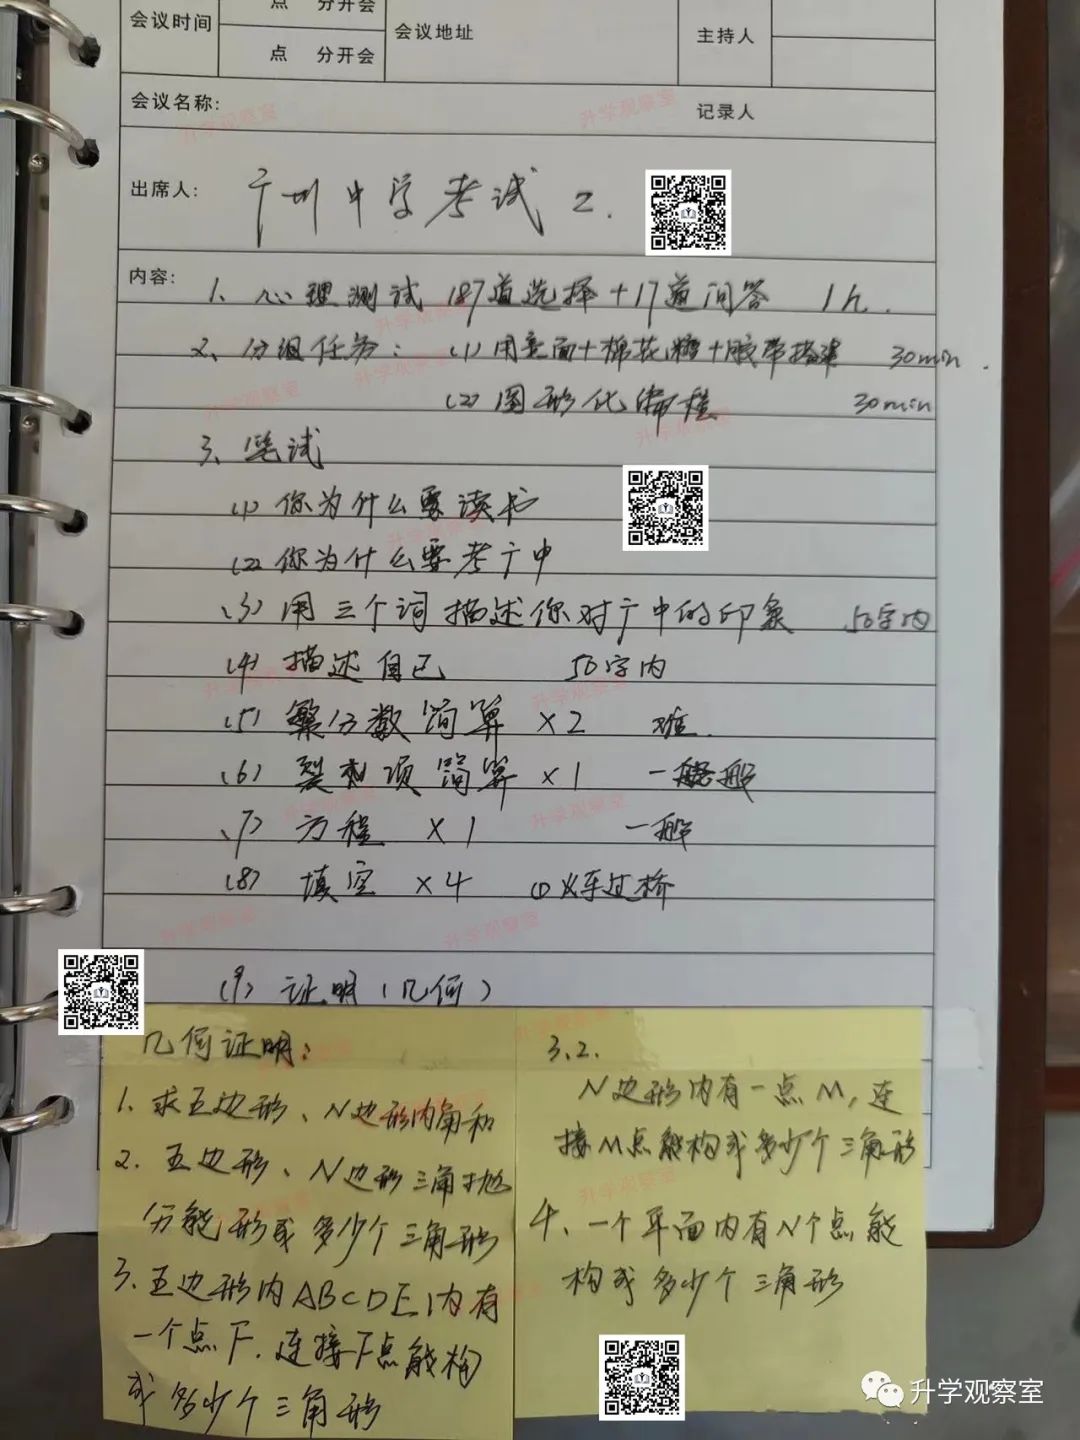 会议时间
点 分开会
点 分开会
会议地址
主持人
会议名称:
记录人
出席人: 广州中学考试 2.
内容:
1、心理测试 187道选择+17道问答 1h.
2、分组任务: (1) 用意面+棉花糖+胶带搭建 30min.
(2) 图形化编程 30min
3、笔试
(1) 你为什么要读书
(2) 你为什么要考广中
(3) 用三个词描述你对广中的印象 50字内
(4) 描述自己 50字内
(5) 繁分数简算 ×2 难.
(6) 裂项简算 ×1 一般
(7) 方程 ×1 一般
(8) 填空 ×4 (1) 火车过桥
(9) 证明(几何)
几何证明:
1. 求五边形、N边形内角和
2. 五边形、N边形三角抛
分能形成多少个三角形
3. 五边形内ABCDE内有
一个点F.连接F点能构
成多少个三角形
3.2.
N边形内有一点M,连
接M点能构成多少个三角形
4、一个平面内有N个点能
构成多少个三角形
升学观察室